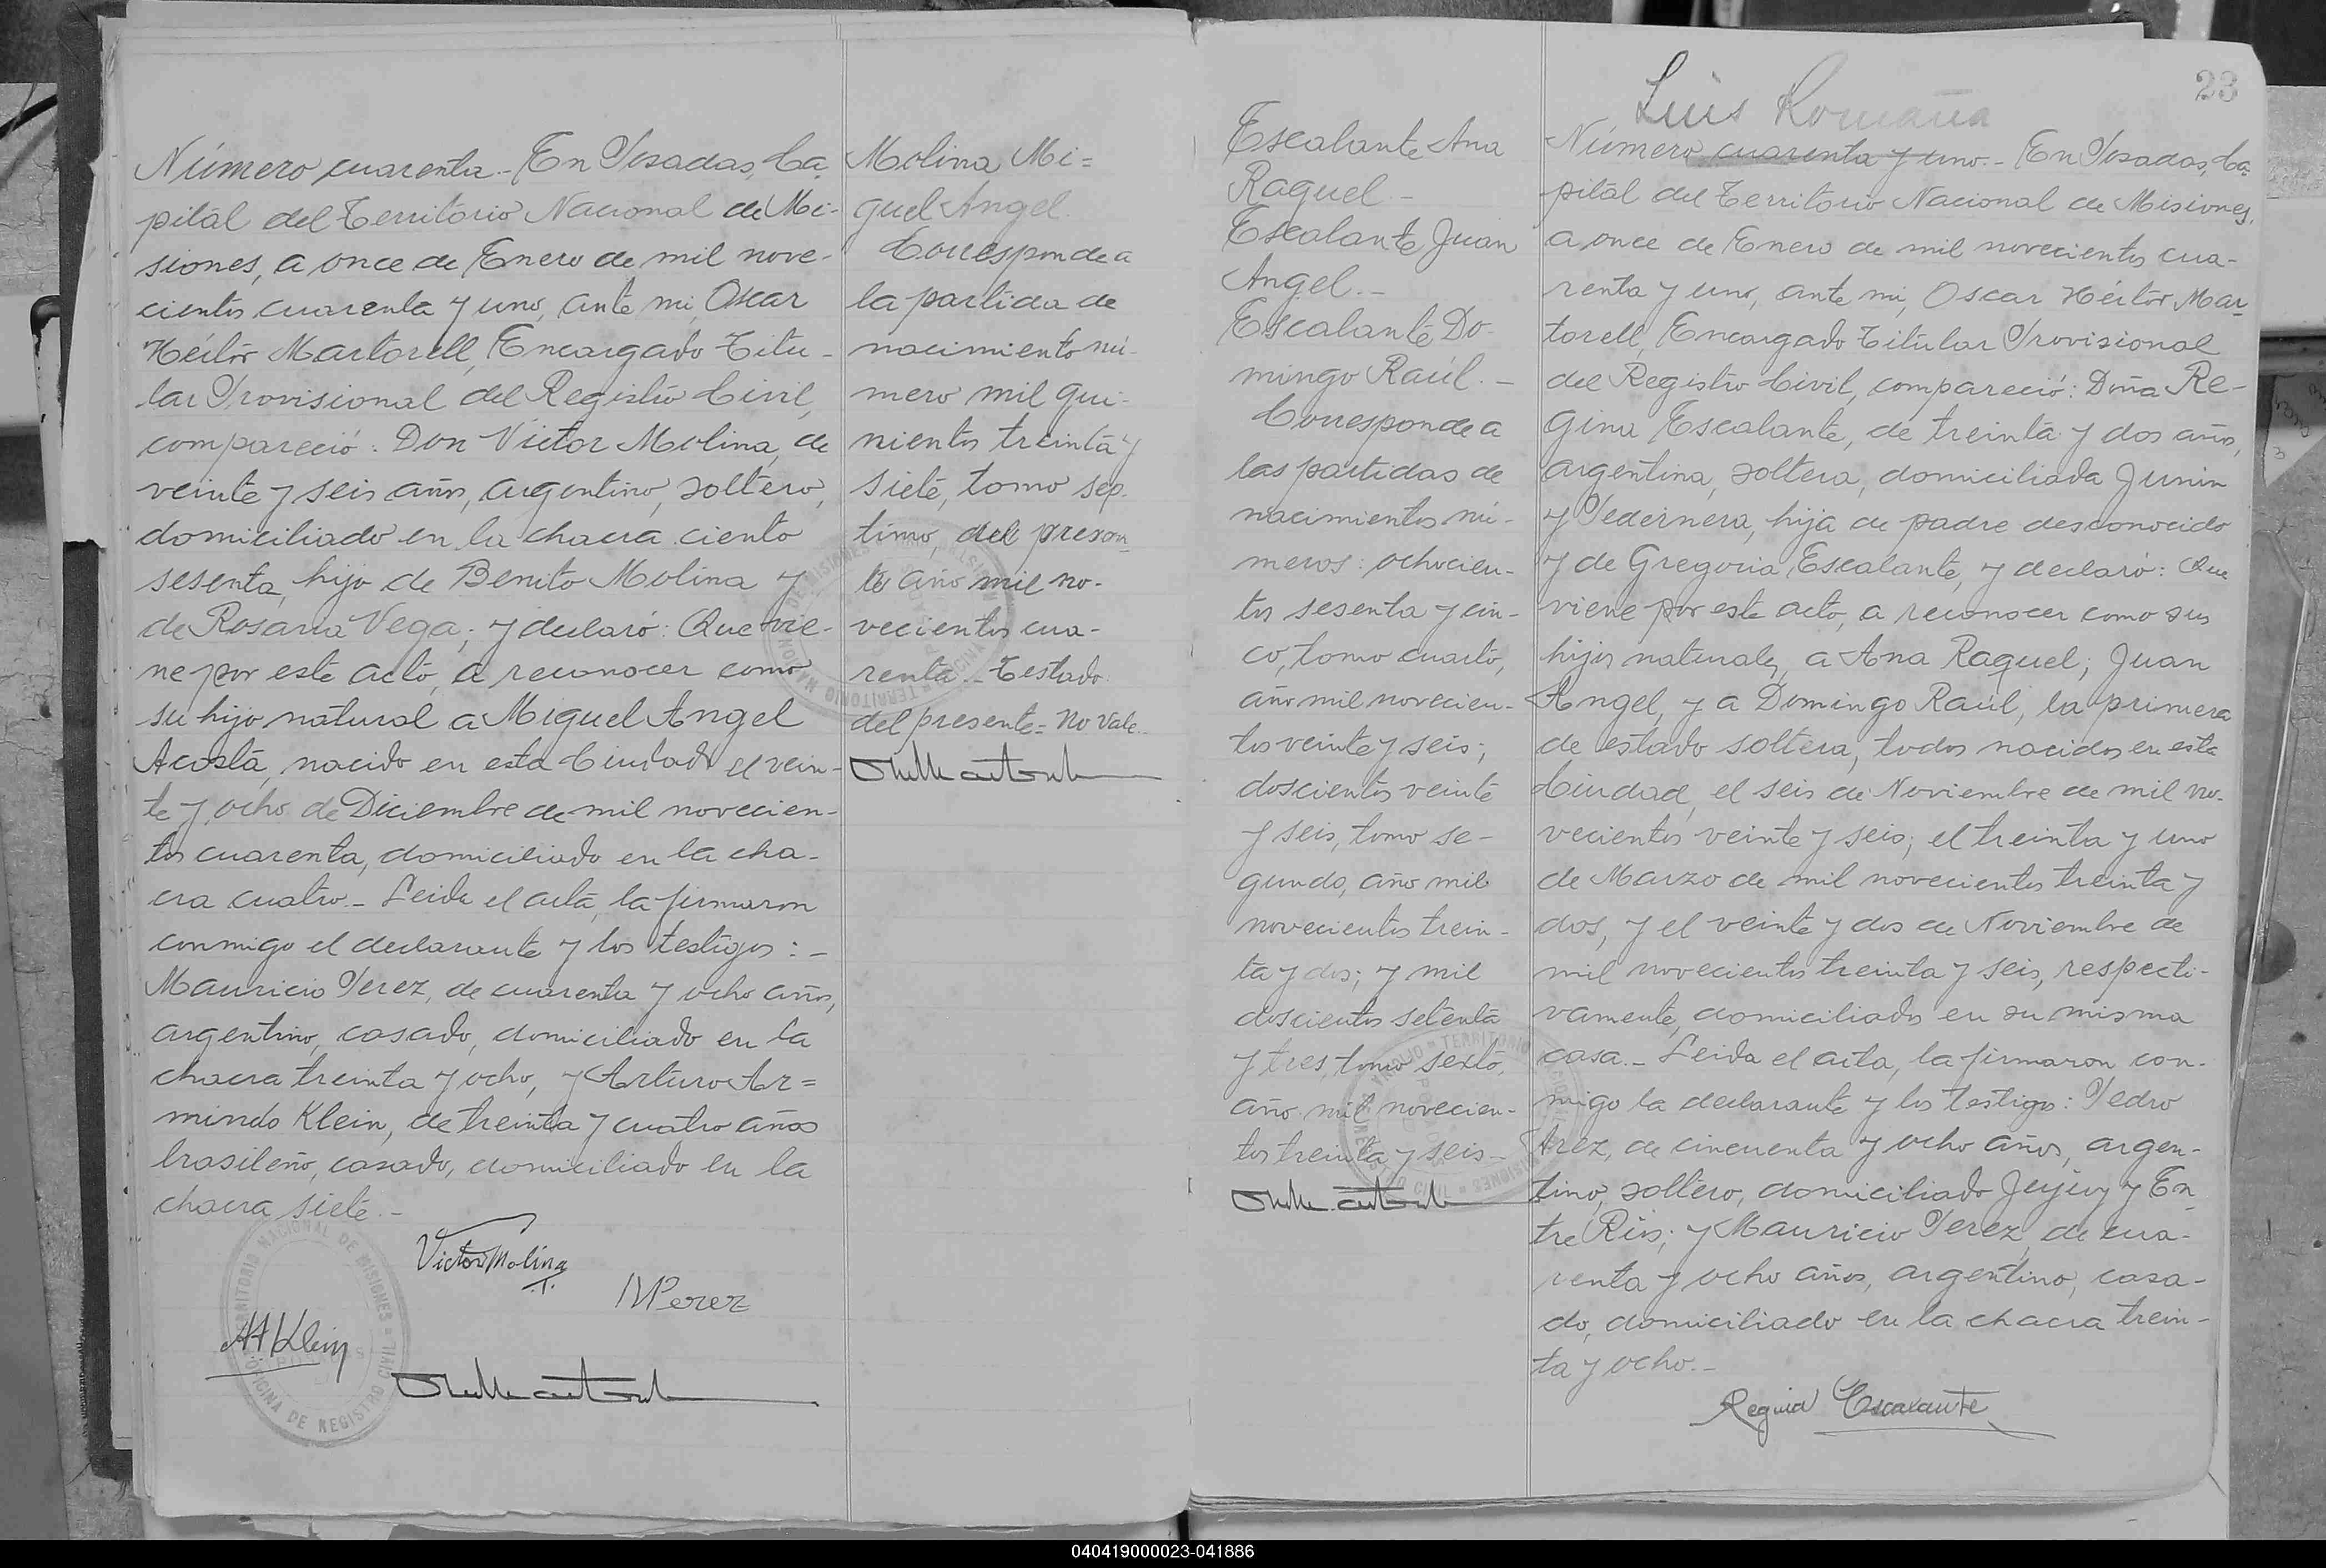 Número cuarenta.- En Posadas, Ca-
pital del Territorio Nacional de Mi-
siones, a once de Enero de mil nove-
cientos cuarenta y uno, ante mi, Oscar
Héctor Martorell, Encargado Titu-
lar Provisional del Registro Civil,
compareció: Don Victor Molina, de
veinte y seis años, argentino, soltero,
domiciliado en la chacra ciento
sesenta, hijo de Benito Molina y
de Rosaria Vega; y declaró: Que vie-
ne por este acto, a reconocer como
su hijo natural a Miguel Angel
Acosta, nacido en esta Ciudad el vein-
te y ocho de Diciembre de mil novecien-
tos cuarenta, domiciliado en la cha-
cra cuatro.- Leida el acta, la firmaron
conmigo el declarante y los testigos:-
Mauricio Perez, de cuarenta y ocho años,
argentino, casado, domiciliado en la
chacra treinta y ocho, y Arturo Ar=
mindo Klein, de treinta y cuatro años
brasileño, casado, domiciliado en la
chacra siete.-
Victor Molina
MPerez
AAKlein
TERRITORIO NACIONAL DE MISIONES
OFICINA DE REGISTRO CIVIL
POSADAS
Molina Mi=
guel Angel.
Corresponde a
la partida de
nacimiento nú-
mero mil qui-
nientos treinta y
siete, tomo sép-
timo, del presen-
te año mil no-
vecientos cua-
renta.- Testado:
del presente= No Vale.-
23
Luis Romaña
Escalante Ana
Raquel.-
Escalante Juan
Angel.-
Escalante Do-
mingo Raúl.-
Corresponde a
las partidas de
nacimientos nú-
meros: ochocien-
tos sesenta y cin-
co, tomo cuarto,
año mil novecien-
tos veinte y seis;
doscientos veinte
y seis, tomo se-
gundo, año mil
novecientos trein-
ta y dos; y mil
doscientos setenta
y tres, tomo sexto,
año mil novecien-
tos treinta y seis.-
Número cuarenta y uno.- En Posadas, Ca-
pital del Territorio Nacional de Misiones,
a once de Enero de mil novecientos cua-
renta y uno, ante mi, Oscar Héctor Mar-
torell, Encargado Titular Provisional
del Registro Civil, compareció: Doña Re-
gina Escalante, de treinta y dos años,
argentina, soltera, domiciliada Junin
y Pedernera, hija de padre desconocido
y de Gregoria Escalante, y declaró: Que
viene por este acto, a reconocer como sus
hijos naturales, a Ana Raquel; Juan
Angel, y a Domingo Raúl, la primera
de estado soltera, todos nacidos en esta
Ciudad, el seis de Noviembre de mil no-
vecientos veinte y seis; el treinta y uno
de Marzo de mil novecientos treinta y
dos, y el veinte y dos de Noviembre de
mil novecientos treinta y seis, respecti-
vamente, domiciliados en su misma
casa.- Leida el acta, la firmaron con-
migo la declarante y los testigos: Pedro
de cincuenta y ocho años, argen-
tino, soltero, domiciliado Jujuy y En-
tre Rios; y Mauricio Perez, de cua-
renta y ocho años, argentino, casa-
do, domiciliado en la chacra trein-
ta y ocho.-
Regina Escalante
040419000023-041886